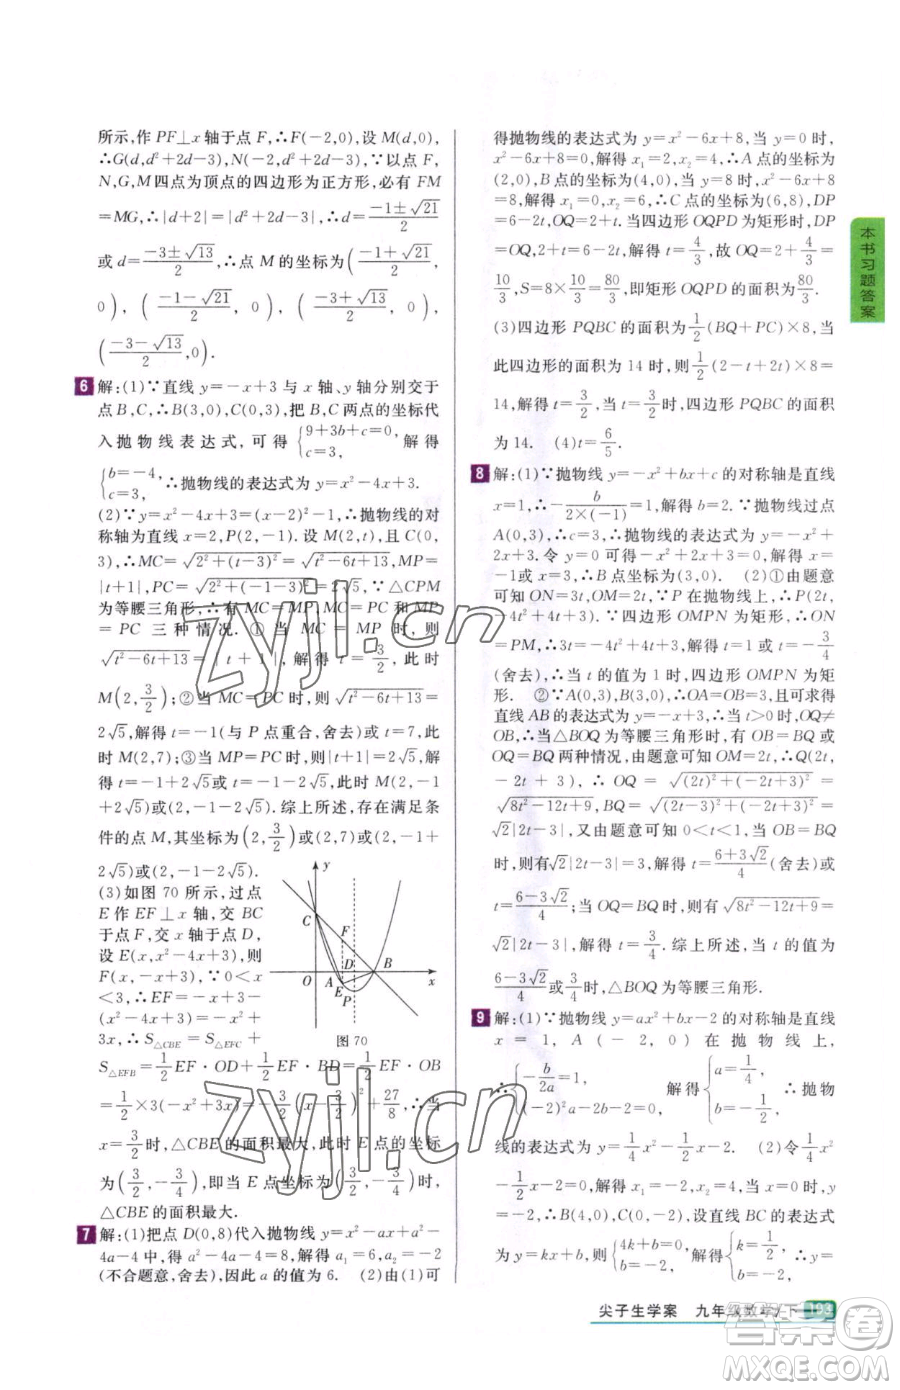 所示,作 PF⊥x 轴于点 F,∴F(-2,0),设 M(d,0),
∴G(d,d²+2d-3),N(-2,d²+2d-3),∵以点 F,
N,G,M 四点为顶点的四边形为正方形,必有 FM
=MG,∴|d+2|=|d²+2d-3|,∴d=(-1±√21)/2
或 d=(-3±√13)/2,∴点 M 的坐标为((-1+√21)/2,
0),((-1-√21)/2,0),((-3+√13)/2,0),
((-3-√13)/2,0).
6 解:(1)∵直线 y=-x+3 与 x 轴、y 轴分别交于
点 B,C,∴B(3,0),C(0,3),把 B,C 两点的坐标代
入抛物线表达式,可得{9+3b+c=0, c=3, 解得
{b=-4, c=3, ∴抛物线的表达式为 y=x²-4x+3.
(2)∵y=x²-4x+3=(x-2)²-1,∴抛物线的对
称轴为直线 x=2,P(2,-1).设 M(2,t),且 C(0,
3),∴MC=√(2²+(t-3)²)=√(t²-6t+13),MP=
|t+1|,PC=√(2²+(-1-3)²)=2√5,∵△CPM
为等腰三角形,∴有 MC=MP,MC=PC 和 MP
=PC 三种情况.①当 MC=MP 时,则
√(t²-6t+13)=|t+1|,解得 t=3/2,此时
M(2,3/2);②当 MC=PC 时,则√(t²-6t+13)=
2√5,解得 t=-1(与 P 点重合,舍去)或 t=7,此
时 M(2,7);③当 MP=PC 时,则|t+1|=2√5,解
得 t=-1+2√5 或 t=-1-2√5,此时 M(2,-1
+2√5)或(2,-1-2√5).综上所述,存在满足条
件的点 M,其坐标为(2,3/2)或(2,7)或(2,-1+
2√5)或(2,-1-2√5).
(3)如图 70 所示,过点
E 作 EF⊥x 轴,交 BC
于点 F,交 x 轴于点 D,
设 E(x,x²-4x+3),则
F(x,-x+3).∵0<x
<3,∴EF=-x+3-
(x²-4x+3)=-x²+
3x,∴S△CBE=S△EFC+
S△EFB=1/2EF·OD+1/2EF·BD=1/2EF·OB
=1/2×3(-x²+3x)=-3/2(x-3/2)²+27/8,∴当
x=3/2时,△CBE 的面积最大,此时 E 点的坐标
为(3/2,-3/4),即当 E 点坐标为(3/2,-3/4)时,
△CBE 的面积最大.
y
C
F
D
O
A
B
x
E
P
图 70
7 解:(1)把点 D(0,8)代入抛物线 y=x²-ax+a²-
4a-4 中,得 a²-4a-4=8,解得 a₁=6,a₂=-2
(不合题意,舍去),因此 a 的值为 6. (2)由(1)可
得抛物线的表达式为 y=x²-6x+8,当 y=0 时,
x²-6x+8=0,解得 x₁=2,x₂=4,∴A 点的坐标为
(2,0),B 点的坐标为(4,0),当 y=8 时,x²-6x+
8=8,解得 x=0 或 x=6,∴C 点的坐标为(6,8),DP
=6-2t,OQ=2+t,当四边形 OQPD 为矩形时,DP
=OQ,即 2+t=6-2t,解得 t=4/3,故 OQ=2+4/3=
10/3,S=8×10/3=80/3,即矩形 OQPD 的面积为80/3.
(3)四边形 PQBC 的面积为1/2(BQ+PC)×8,当
此四边形的面积为 14 时,则1/2(2-t+2t)×8=
14,解得 t=3/2,当 t=3/2时,四边形 PQBC 的面积
为 14. (4)t=6/5.
8 解:(1)∵抛物线 y=-x²+bx+c 的对称轴是直线
x=1,∴-b/(2×(-1))=1,解得 b=2.∵抛物线过点
A(0,3),∴c=3,∴抛物线的表达式为 y=-x²+
2x+3.令 y=0 可得-x²+2x+3=0,解得 x=
-1或 x=3,∴B 点坐标为(3,0). (2)①由题意
可知 ON=3t,OM=2t,∵P 在抛物线上,∴P(2t,
-4t²+4t+3).∵四边形 OMPN 为矩形,∴ON
=PM,∴3t=-4t²+4t+3,解得 t=1 或 t=-3/4
(舍去),∴当 t 的值为 1 时,四边形 OMPN 为矩
形. ②∵A(0,3),B(3,0),∴OA=OB=3,且可求得
直线 AB 的表达式为 y=-x+3,∴当 t>0 时,OQ≠
OB,∴当△BOQ 为等腰三角形时,有 OB=QB 或
OQ=BQ 两种情况,由题意可知 OM=2t,∴Q(2t,
-2t+3),∴OQ=√((2t)²+(-2t+3)²)=
√(8t²-12t+9),BQ=√((2t-3)²+(-2t+3)²)=
√2|2t-3|,又由题意可知 0<t<1,当 OB=BQ
时,则有√2|2t-3|=3,解得 t=(6+3√2)/4(舍去)或
t=(6-3√2)/4;当 OQ=BQ 时,则有√(8t²-12t+9)=
√2|2t-3|,解得 t=3/4.综上所述,当 t 的值为
(6-3√2)/4或3/4时,△BOQ 为等腰三角形.
9 解:(1)∵抛物线 y=ax²+bx-2 的对称轴是直线
x=1,A(-2,0)在抛物线上,
∴{-b/2a=1, (-2)²a-2b-2=0, 解得{a=1/4, b=-1/2, ∴抛物
线的表达式为 y=1/4x²-1/2x-2. (2)令1/4x²
-1/2x-2=0,解得 x₁=-2,x₂=4,当 x=0 时,
y=-2,∴B(4,0),C(0,-2),设直线 BC 的表达式
为 y=kx+b,则{4k+b=0, b=-2, 解得{k=1/2, b=-2, ∴y=
本书习题答案
尖子生学案 九年级数学 下 193
zyjl.cn
zyjl.cn
答案圈
MXQE.COM